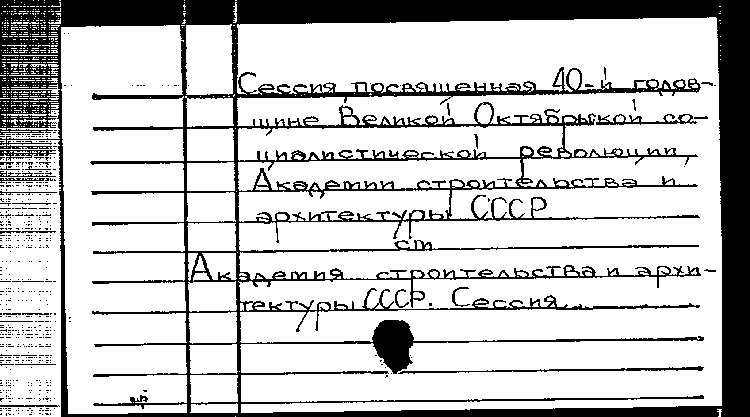 Сессия посвященная 40-й годов-
щине Великой Октябрькой со-
циалистической революции,
Академии строительства и
архитектуры СССР
см
Академия строительства и архи-
тектуры СССР. Сессия...